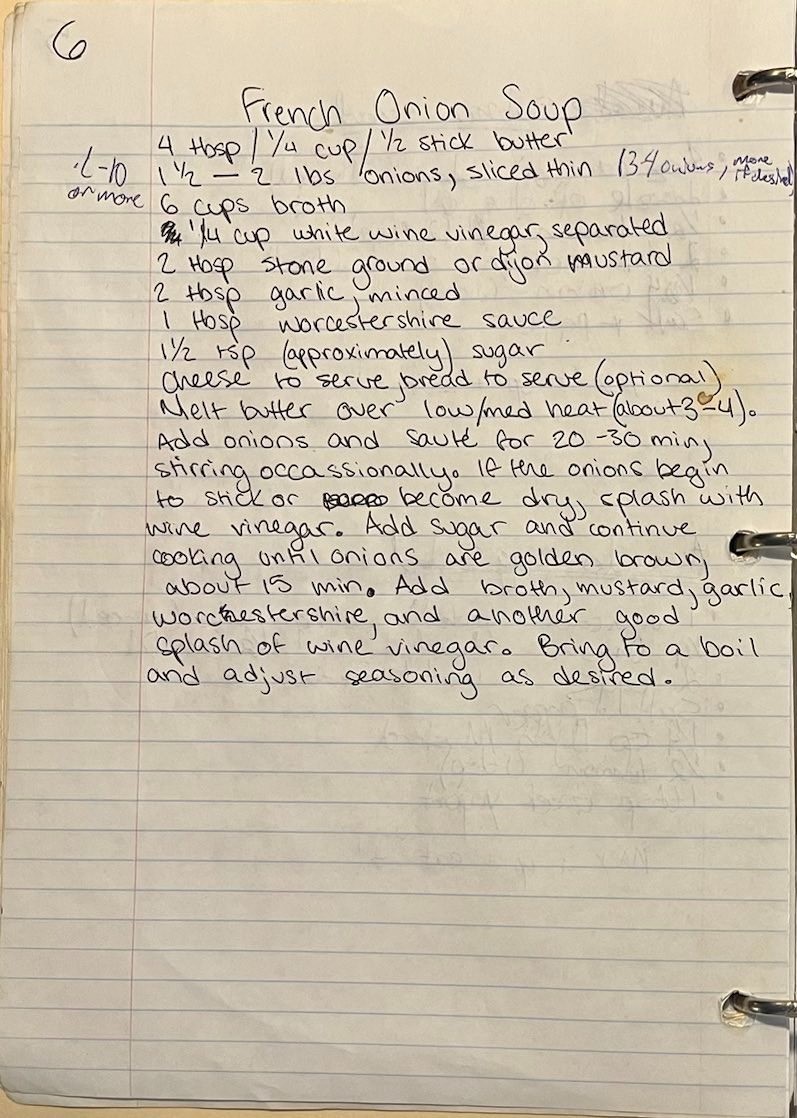 6
French Onion Soup
4 tbsp / 1/4 cup / 1/2 stick butter
1 1/2 – 2 lbs onions, sliced thin
more if desired
or more
6 cups broth
1/4 cup white wine vinegar, separated
2 tbsp stone ground or dijon mustard
2 tbsp garlic, minced
1 tbsp worcestershire sauce
1 1/2 tsp (approximately) sugar
cheese to serve, bread to serve (optional)
Melt butter over low/med heat (about 3-4).
Add onions and sauté for 20-30 min,
stirring occassionally. If the onions begin
to stick or become dry, splash with
wine vinegar. Add sugar and continue
cooking until onions are golden brown,
about 15 min. Add broth, mustard, garlic,
worchestershire, and another good
splash of wine vinegar. Bring to a boil
and adjust seasoning as desired.